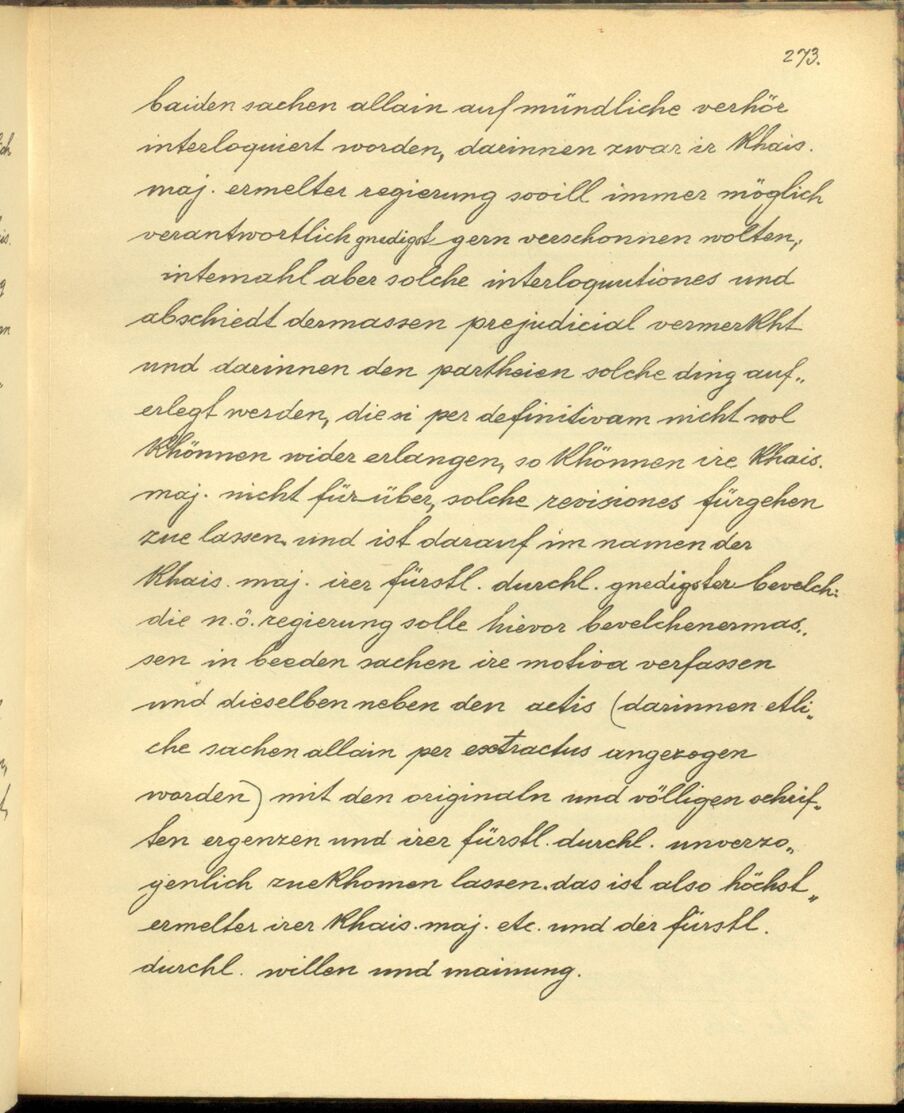 273.
baiden sachen allain auf mündliche verhör
interloquiert worden, darinnen zwar ir Khais.
maj. ermelter regierung sovill immer möglich
verantwortlich gnedigst gern verschonnen wolten,
intemahl aber solche interloqutiones und
abschiedt dermassen prejudicial vermerkht
und darinnen den partheien solche ding auf„
erlegt werden, die si per definitivam nicht wol
Khönnen wider erlangen, so Khönnen ire Khais.
maj. nicht für über, solche revisiones fürgehen
zue lassen. und ist darauf im namen der
Khais. maj. irer fürstl. durchl. gnedigster bevelch:
die n.ö. regierung solle hievor bevelchenermas„
sen in beeden sachen ire motiva verfassen
und dieselben neben den actis (darinnen etli„
che sachen allain per extractus angezogen
worden) mit den originaln und völligen schrif„
ten ergenzen und irer fürstl. durchl. unverzo„
genlich zuekhomen lassen. das ist also höchst„
ermelter irer Khais. maj. etc. und der fürstl.
durchl. willen und mainung.